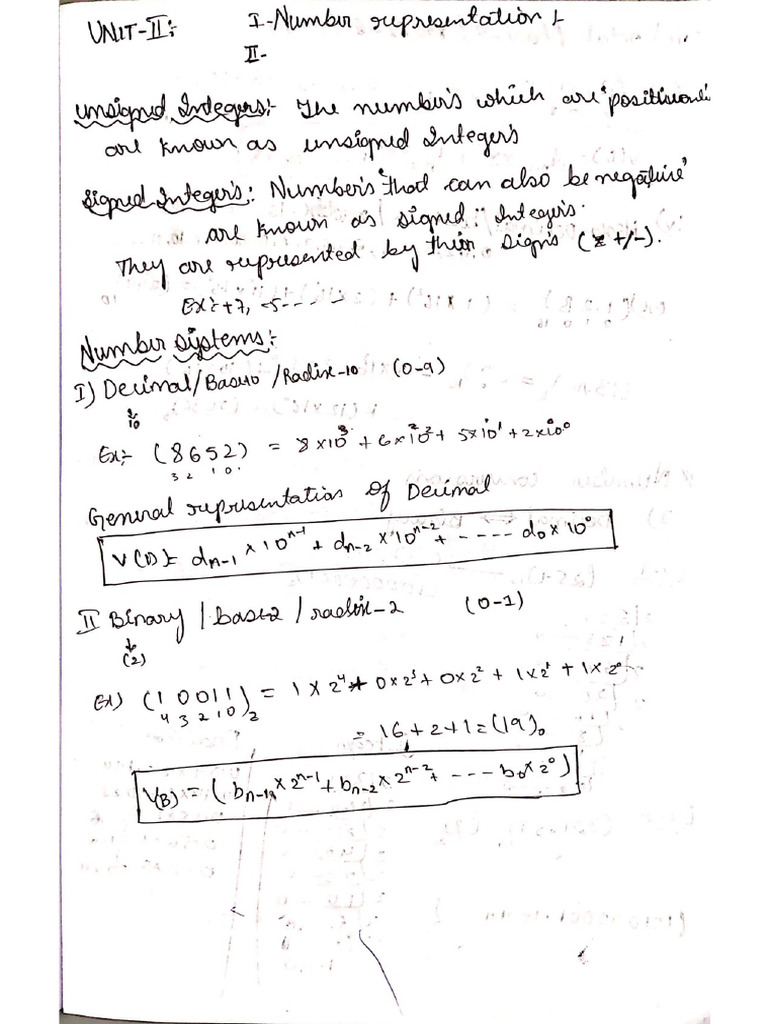 UNIT-II:- I-Number representation :-
II-
Unsigned Integers:- The number's which are "positive"
are known as unsigned Integers
Signed Integer's: Number's "that can also be negative"
are known as signed Integer's.
They are represented by their signs (+/-).
Ex:- +7, -5----
Number systems:-
I) Decimal/Base-10/Radix-10 (0-9)
↓
10
Ex:- (8652) = 8×10³ + 6×10² + 5×10¹ + 2×10⁰
3 2 1 0
General representation of Decimal
V(D) = dₙ₋₁ × 10ⁿ⁻¹ + dₙ₋₂ × 10ⁿ⁻² + ----- d₀ × 10⁰
II Binary / base-2 / radix-2 (0-1)
↓
(2)
Ex) (1 0 0 1 1)₂ = 1×2⁴ + 0×2³ + 0×2² + 1×2¹ + 1×2⁰
4 3 2 1 0
= 16+2+1 = (19)₀
V(B) = (bₙ₋₁ × 2ⁿ⁻¹ + bₙ₋₂ × 2ⁿ⁻² + --- b₀ × 2⁰)